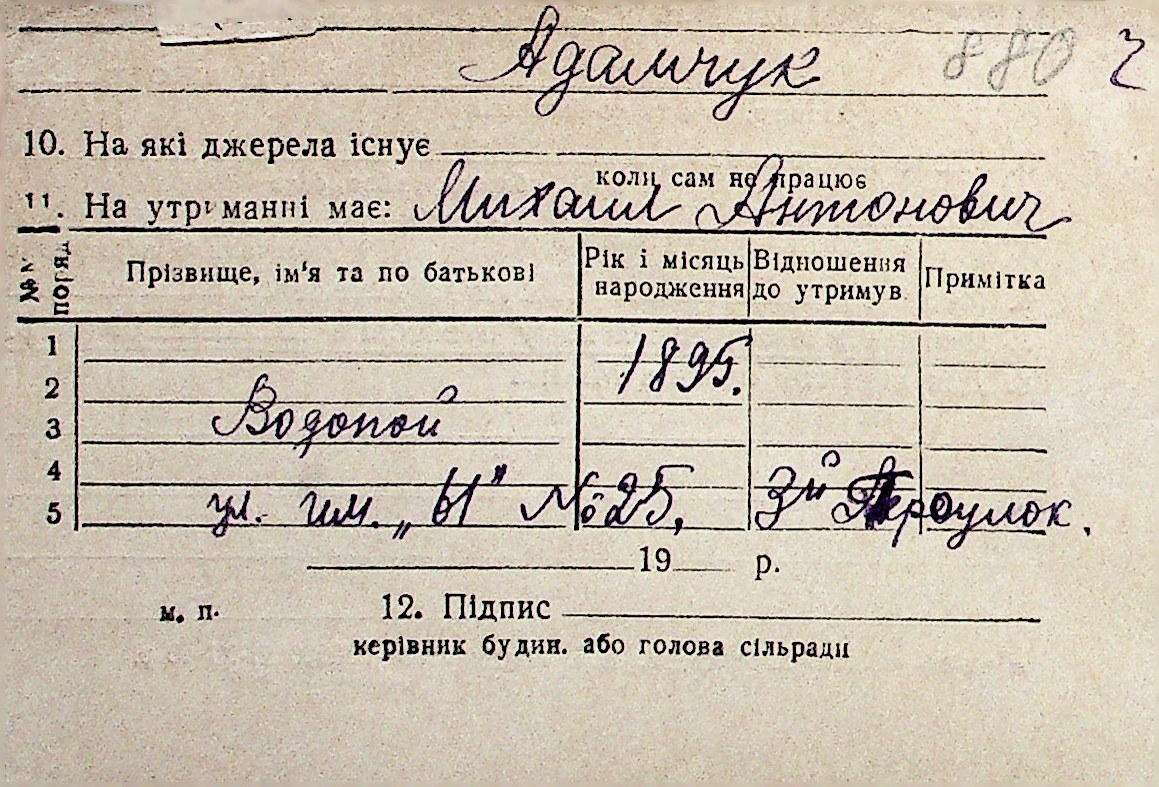 Адамчук 880 2
10. На які джерела існує
коли сам не працює
11. На утриманні має: Михаил Антонович
№№ поряд.
Прізвище, ім'я та по батькові
Рік і місяць народження
Відношення до утримув.
Примітка
1
1895.
2
3 Водопой
4
5 ул. им. „Ы" № 25, 3й Пероулок.
19 р.
м. п. 12. Підпис
керівник будин. або голова сільради